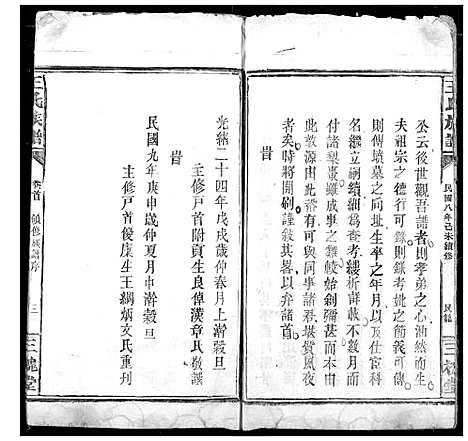 王氏族譜
民國八年己未續修
民籍
三槐堂
公云後世觀吾譜者則孝弟之心油然而生
夫祖宗之德行可錄則錄考妣之節義可傳
則傳墳墓之向址生卒之年月以及
名繼立祠續細為查考縷析詳載不數月而
付諸梨棗雖成事之難較始創彌甚而
此敦源由此可與同事諸君甚質風夜
者矣時將開刷謹敘其畧以弁諸首
旹
光緒二十四年戊戌歲仲春月上澣穀旦
主修戶首附貢生良倬漢章氏敬譔
旹
民國九年庚申歲仲夏月中澣穀旦
主修戶首優廩生王綱炳文氏重刊
王氏族譜
卷首
續修族譜序
三
三槐堂